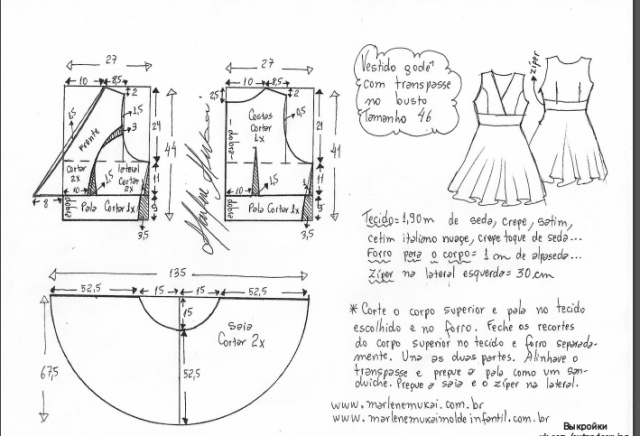 27
10
8,5
2
1,5
3
Frente
24
44
Cortar
2x
lateral
Cortar
2x
11
10
1,5
dobra
Pala Cortar 1x
8
3,5
Marlene Mukai
27
10
8,5
2,5
2
Costas
Cortar
2x
0,5
dobra
21
41
11
10
1,5
dobra
Pala Cortar 1x
3,5
Vestido godê
com transpasse
no busto
Tamanho 46
zíper
Tecido=1,90m de seda, crepe, satim,
cetim italiano nuage, crepe toque de seda...
Forro para o corpo= 1 cm de alpaseda...
Zíper na lateral esquerda= 30 cm
135
52,5
15
15
52,5
15
Saia
Cortar 2x
67,5
52,5
* Corte o corpo superior e pala no tecido
escolhido e no forro. Feche os recortes
do corpo superior no tecido e forro separada-
mente. Una as duas partes. Alinhave o
transpasse e pregue a pala como um san-
duiche. Pregue a saia e o zíper na lateral.
www.marlenemukai.com.br
www.marlenemukaimoldeinfantil.com.br
Выкройки